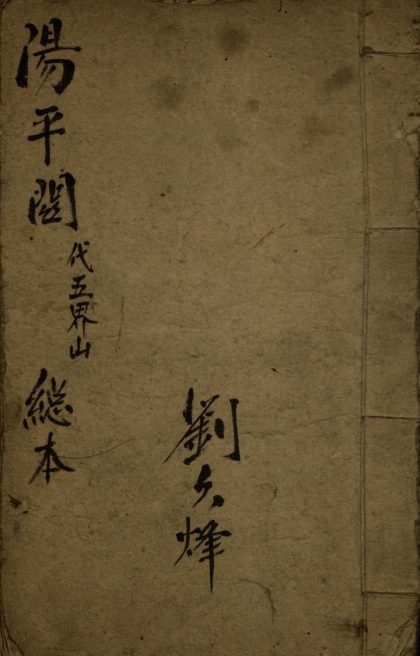 劉久烽
陽平関
代五界山
総本